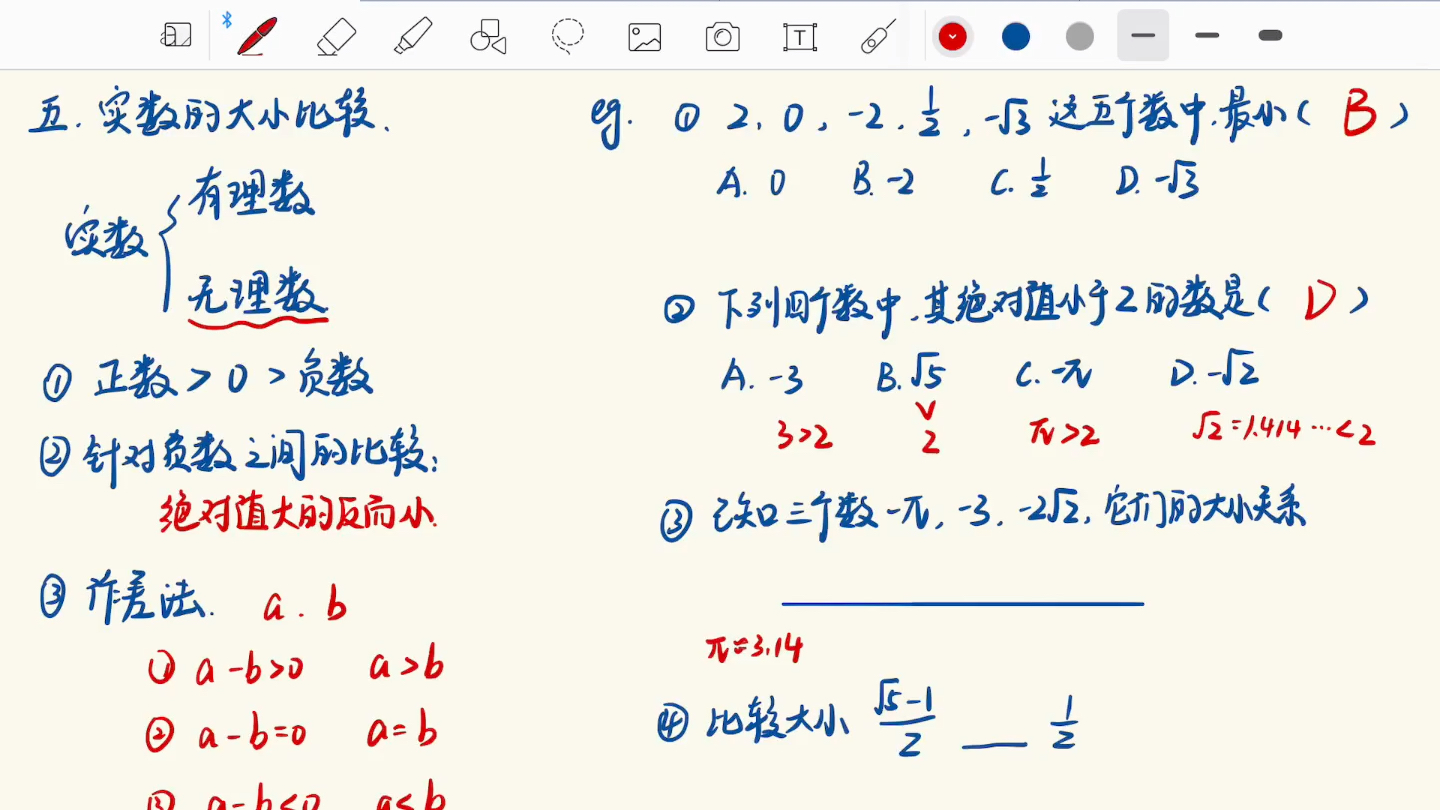 五. 实数的大小比较.
实数 { 有理数
无理数
① 正数 > 0 > 负数
② 针对负数之间的比较:
绝对值大的反而小.
③ 作差法. a . b
① a-b>0 a>b
② a-b=0 a=b
③ a-b<0 a<b
eg. ① 2, 0, -2, 1/2, -√3 这五个数中, 最小( B )
A. 0 B. -2 C. 1/2 D. -√3
② 下列四个数中, 其绝对值小于2的数是( D )
A. -3 B. √5 C. -π D. -√2
3>2 √5 > 2 π>2 √2=1.414…<2
③ 已知三个数 -π, -3, -2√2, 它们的大小关系
π=3.14
④ 比较大小 (√5-1)/2 ___ 1/2